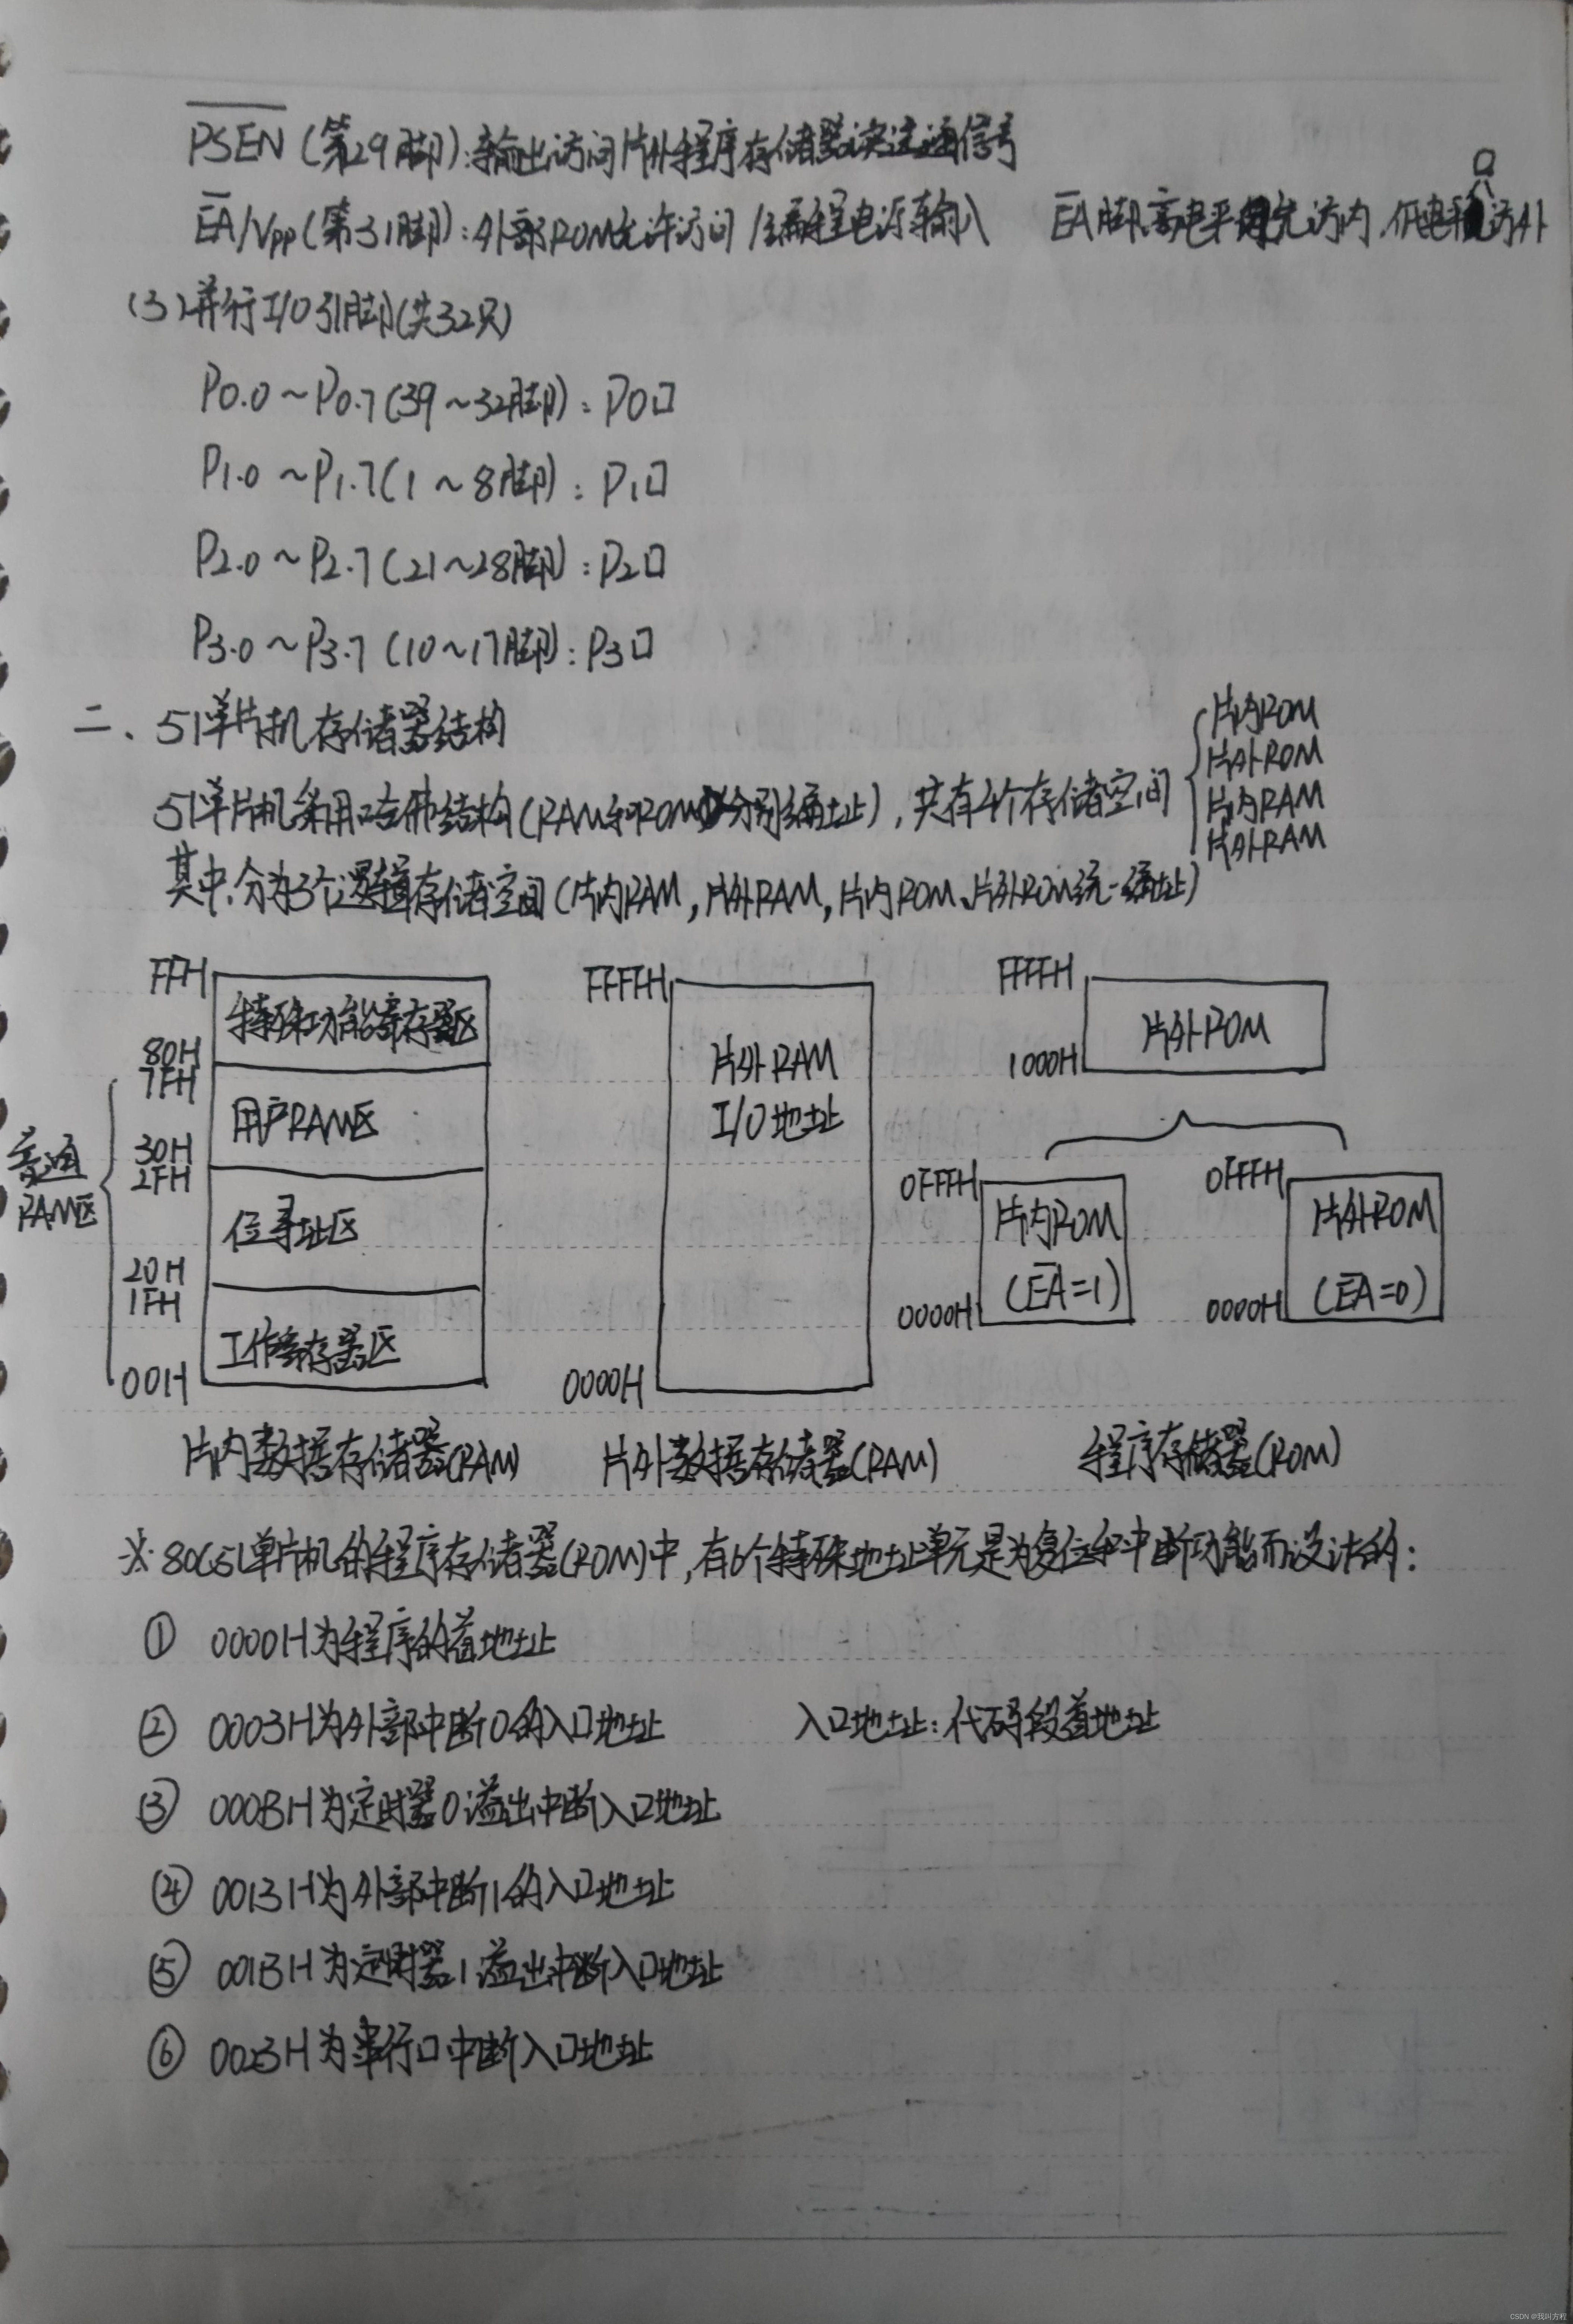 PSEN (第29脚):输出访问片外程序存储器读选通信号
EA/Vpp(第31脚):外部ROM允许访问/编程电源输入 EA脚高电平先访内,低电平访外
(3)并行I/O引脚(共32只)
P0.0~P0.7(39~32脚):P0口
P1.0~P1.7(1~8脚):P1口
P2.0~P2.7(21~28脚):P2口
P3.0~P3.7(10~17脚):P3口
二、51单片机存储器结构
51单片机采用哈佛结构(RAM和ROM分别编址),共有4个存储空间
片内ROM
片外ROM
片内RAM
片外RAM
其中,分为3个逻辑存储空间(片内RAM,片外RAM,片内ROM、片外ROM统一编址)
FFH
特殊功能寄存器区
80H
7FH
用户RAM区
30H
2FH
普通
RAM区
位寻址区
20H
1FH
工作寄存器区
00H
片内数据存储器(RAM)
FFFFH
片外RAM
I/O地址
0000H
片外数据存储器(RAM)
FFFFH
片外ROM
1000H
0FFFH
片内ROM
(EA=1)
0000H
0FFFH
片外ROM
(EA=0)
0000H
程序存储器(ROM)
※80C51单片机的程序存储器(ROM)中,有6个特殊地址单元是为复位和中断功能而设计的:
① 0000H为程序的首地址
② 0003H为外部中断0的入口地址 入口地址:代码段首地址
③ 000BH为定时器0溢出中断入口地址
④ 0013H为外部中断1的入口地址
⑤ 001BH为定时器1溢出中断入口地址
⑥ 0023H为串行口中断入口地址
CSDN @我叫方程